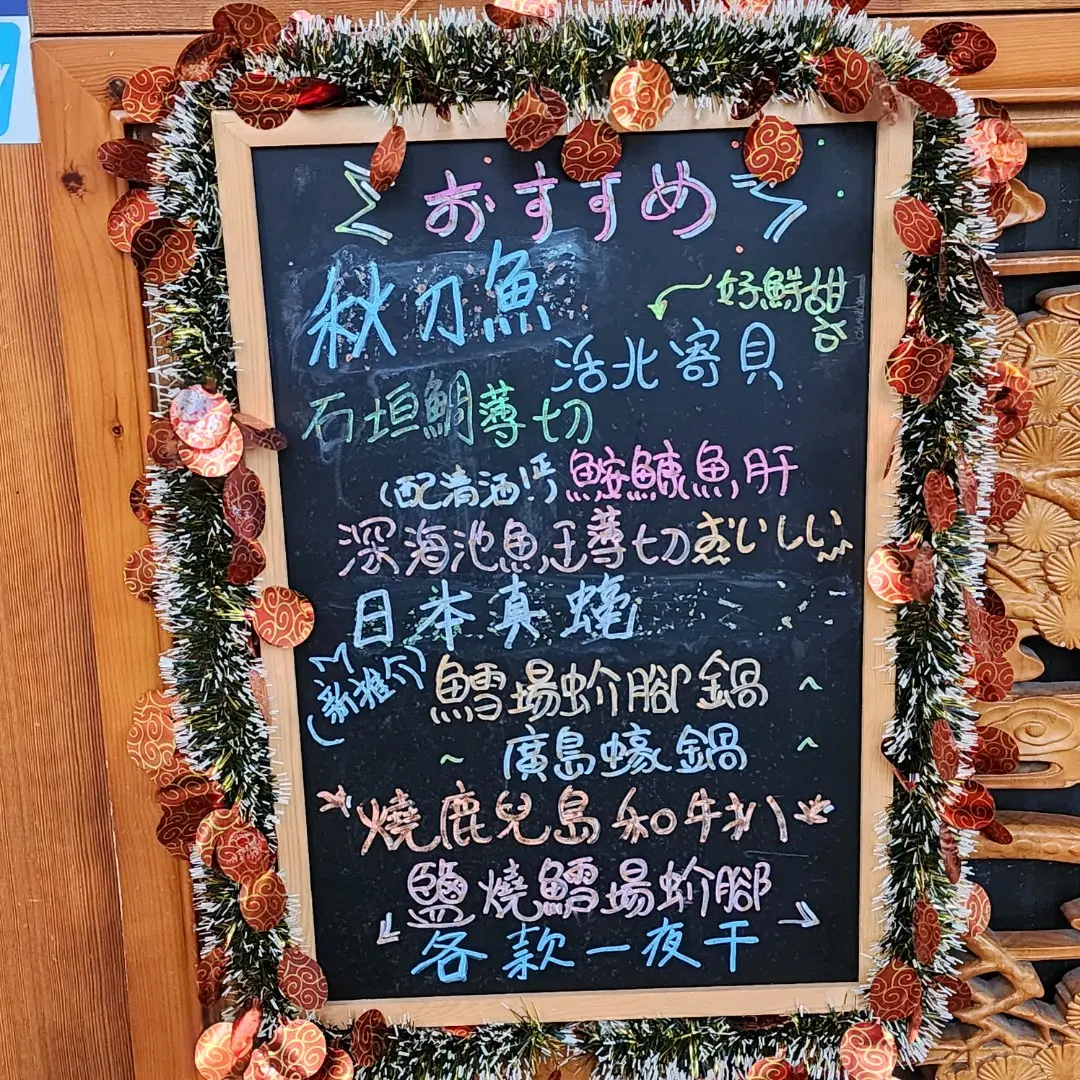 おすすめ
秋刀魚
好鮮甜
活北寄貝
石垣鯛薄切
鮟鱇魚肝
深海池魚王薄切 おいしい
日本真蠔
(新推介)
鱈場蚧腳鍋
廣島蠔鍋
燒鹿兒島和牛扒
鹽燒鱈場蚧腳
各款一夜干